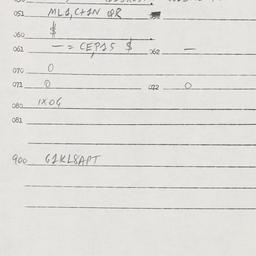 051 ML1,C+1N QR
060 $
061 — = CEP15 $ 062 —
070 0
071 0 072 0
080 1X0G
081
900 G1KL8APT